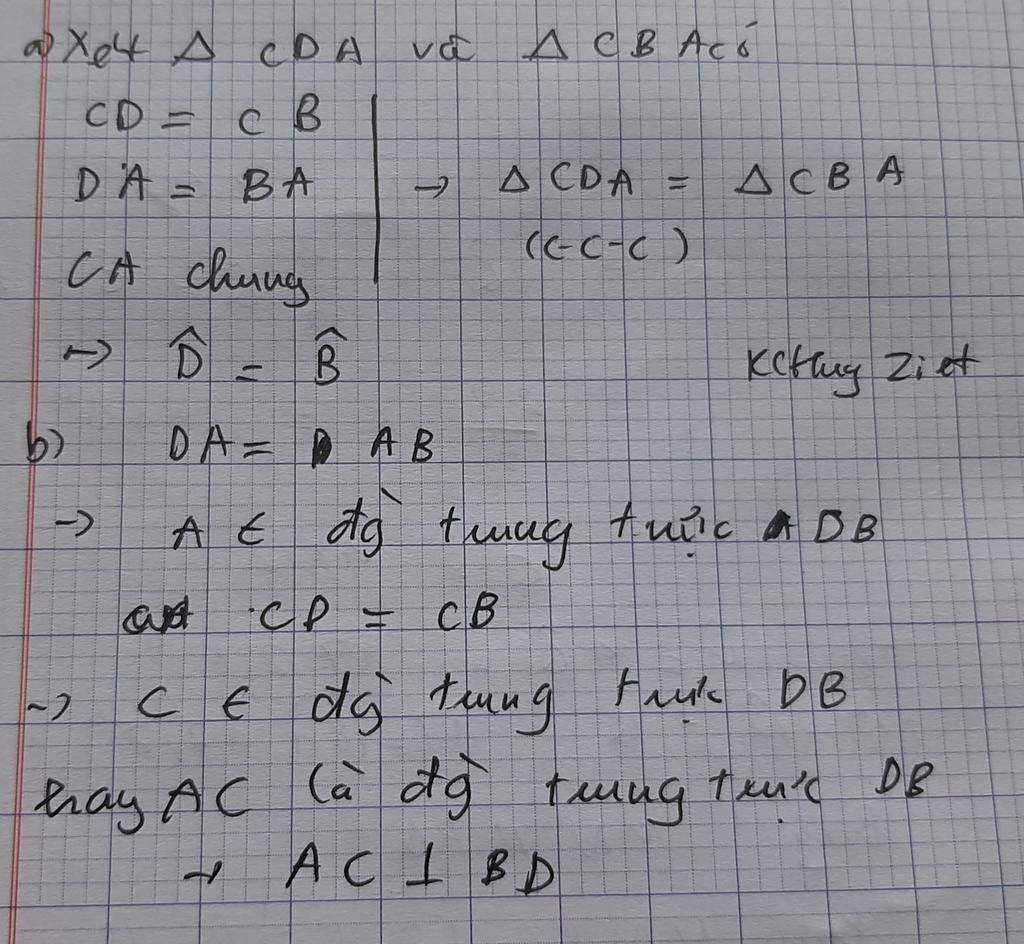 a) Xét Δ CDA và Δ CBA có
CD = CB
DA = BA → Δ CDA = Δ CBA
CA chung (c-c-c)
→ D̂ = B̂
b) DA = AB
→ A ∈ đg̀ trung trực DB
CD = CB
→ C ∈ đg̀ trung trực DB
hay AC là đg̀ trung trực DB
→ AC ⊥ BD